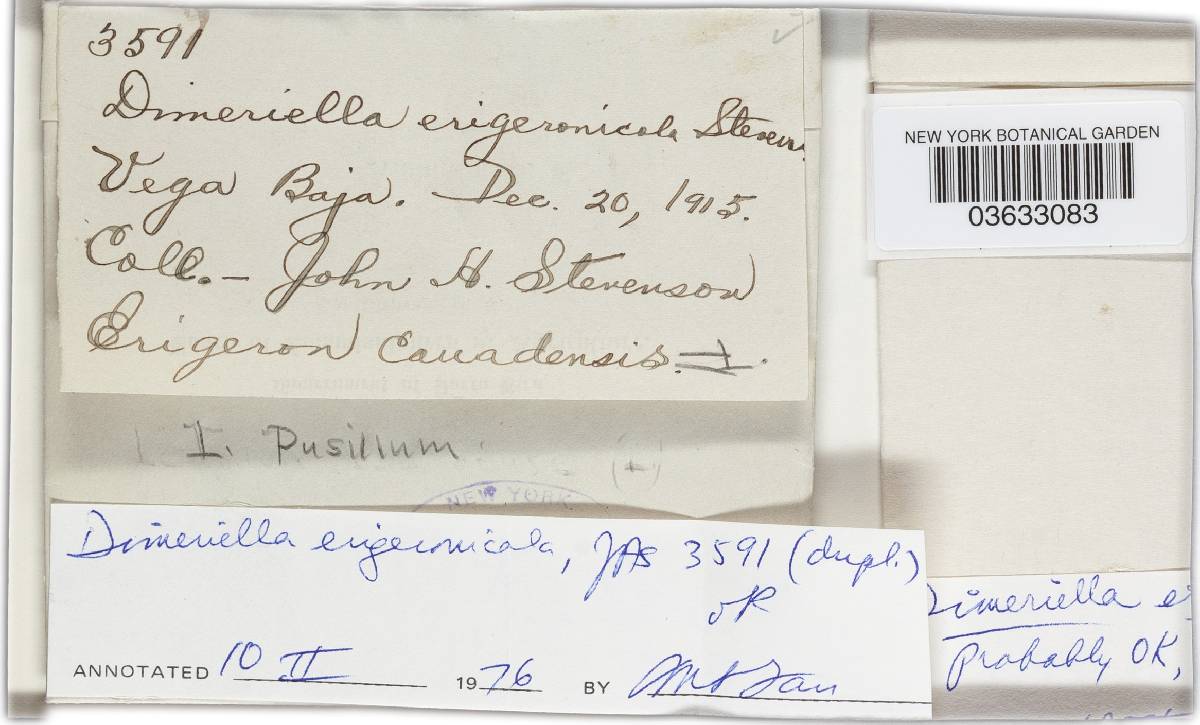 3591
Dimeriella erigeronicola Steven.
Vega Baja. Dec. 20, 1915.
Coll. – John A. Stevenson
Erigeron canadensis.
I. Pusillum
(+)
NEW YORK
NEW YORK BOTANICAL GARDEN
03633083
Dimeriella erigeronicola, JAS 3591 (dupl.)
OK
ANNOTATED 10 II 1976 BY
Dimeriella e
Probably OK,